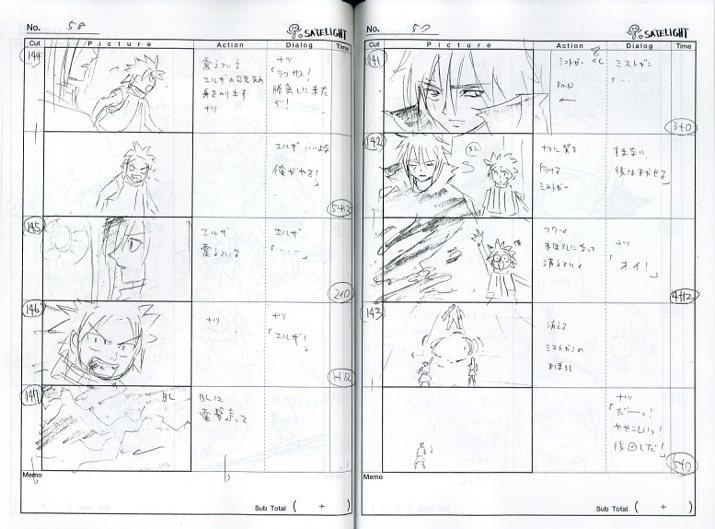 No. 58
SATELIGHT
Cut Picture Action Dialog Time
144
震えている
エルザの
身をのり出す
ナツ
ナツ
「ラクサス!
勝負しに来た
ぞ!
エルザ、いいよな
俺がやる!」
5+12
145
エルザ
震えている
エルザ
「……」
2+0
146
ナツ
ナツ
「エルザ!」
1+12
147
BL
BLに
電撃走って
Memo
Sub Total ( + )
No. 57
SATELIGHT
Cut Picture Action Dialog Time
141
ミストガン OL
PAN
ミストガン
「……
3+0
142
ナツに背を
向ける
ミストガン
すまない、
後はまかせる」
OL
フワっと
まぼろしになって
消えていく
ナツ
「オイ!」
4+12
143
消える
ミストガンの
まぼろし
ナツ
「だーっ!
ややこしいっ!
後回しだ!」
5+0
Memo
Sub Total ( + )